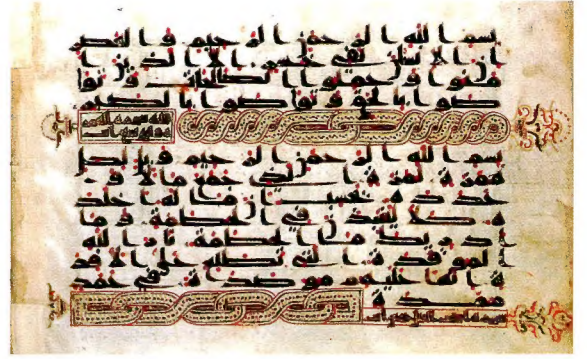 بسم الله الرحمن الرحيم والعصر
ان الانسن لفي خسر الا الذين ا
منوا وعملوا الصلحت وتوا
صوا بالحق وتواصوا بالصبر
بسم الله الرحمن الرحيم ويل لكل
همزة لمزة الذي جمع مالا و
عدده يحسب ان ماله اخلد
ه كلا لينبذن في الحطمة وما
ادريك ما الحطمة نار الله
الموقدة التي تطلع على الافد
ة انها عليهم موصدة في عمد
ممددة